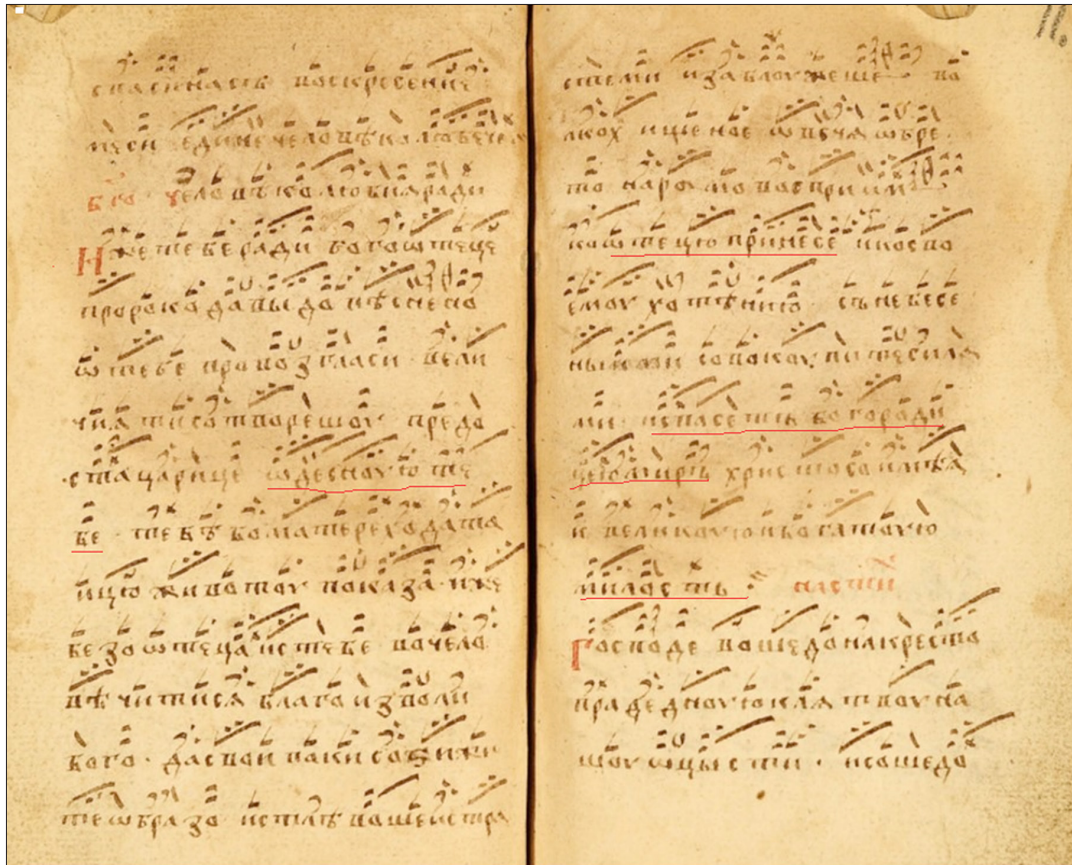 спаси насть воскресение
мь си едине человѣколюбече
Человѣколюбия ради
Иже тебе ради богоѡтеце
пророко давыдо пѣснено
ѡ тебе провозгласи вели
чия ти сотворешоу предо
ста царице ѡдесноую те
бе · тебѣ бо матере ходата
ицю животоу показа иже
безо ѡтеца ис тебе вочело
вѣчитися благоизволи
бого · да свои паки
те ѡбразо истлѣвошеи стра
стеми и заблоужеше во
лкохищеное ѡвечя ѡбре
то на рамо восприимо
ко ѡтецю принесе и косво
емоу хотѣнию · съ небесе
ными совокоупите сила
ми · и спасеть богороди
це миръ христосо имѣя
и великоую и богатоую
милость
Господе вошедо на кресто
прадедноую клятвоу на
шоу ѡцысти · и сошедо